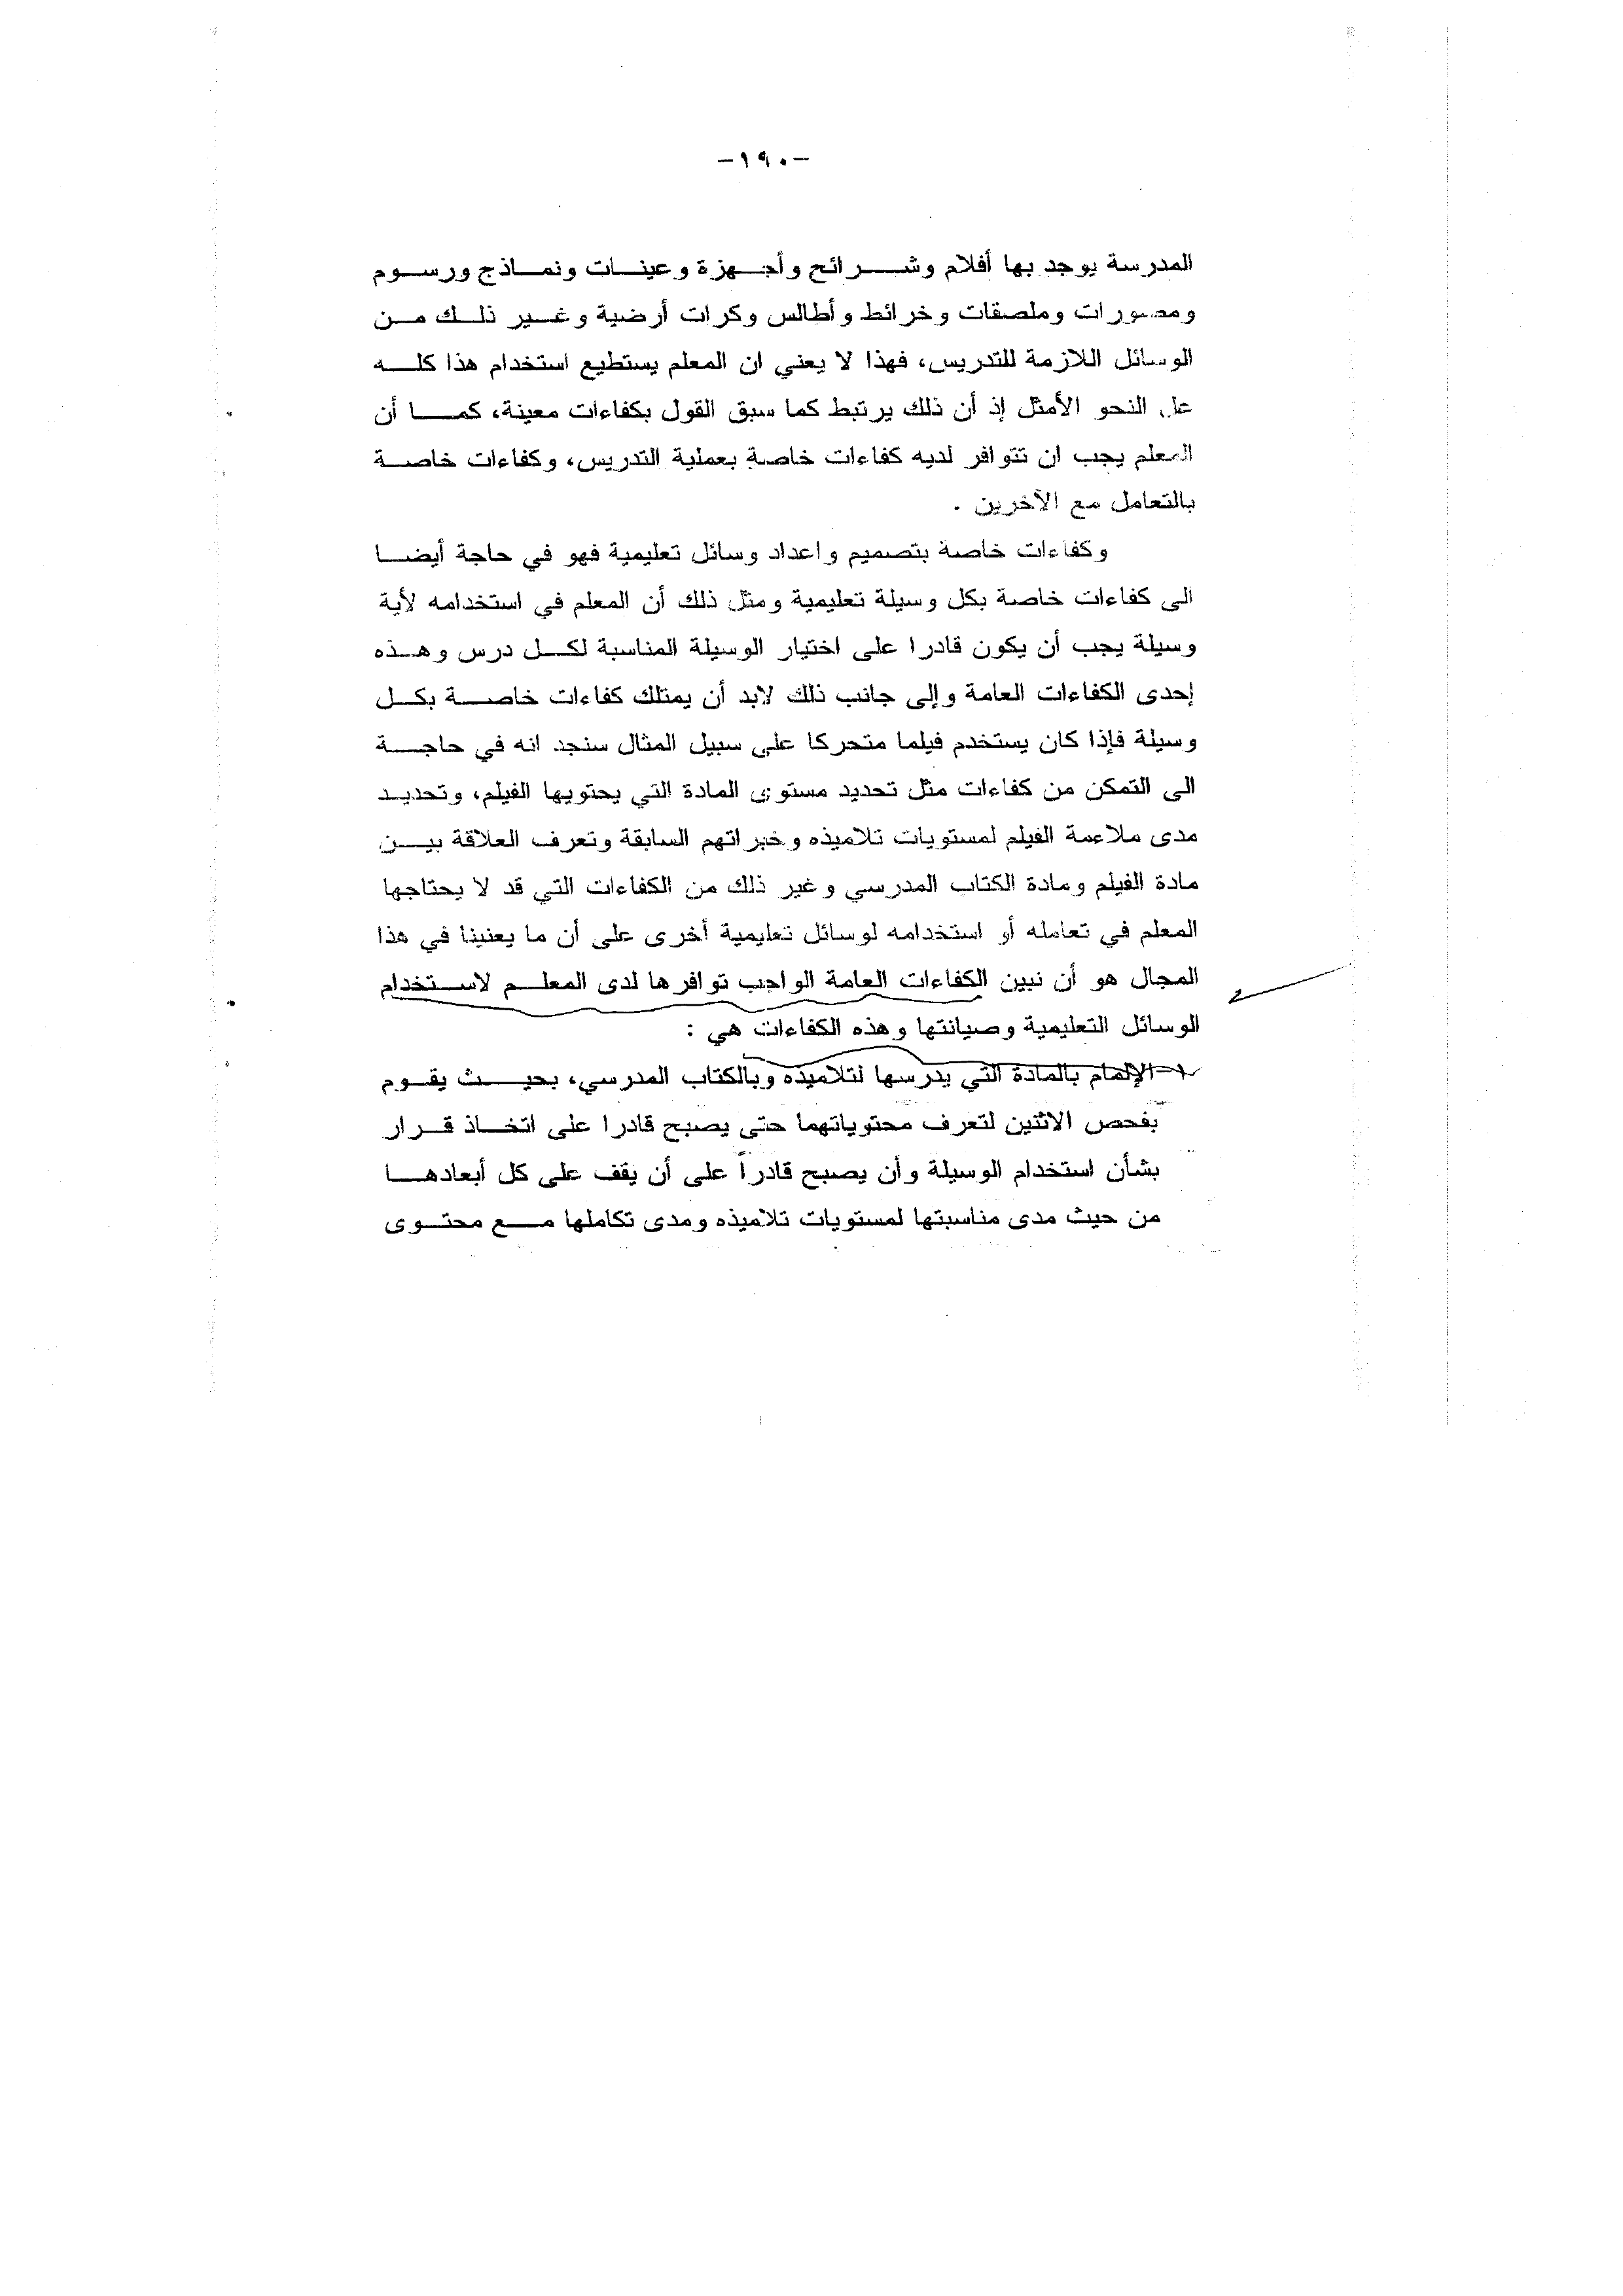 -١٩٠-
المدرسة يوجد بها أفلام وشرائح وأجهزة وعينات ونماذج ورسوم
ومصورات وملصقات وخرائط وأطالس وكرات أرضية وغير ذلك من
الوسائل اللازمة للتدريس، فهذا لا يعني ان المعلم يستطيع استخدام هذا كله
على النحو الأمثل إذ أن ذلك يرتبط كما سبق القول بكفاءات معينة، كما أن
المعلم يجب ان تتوافر لديه كفاءات خاصة بعملية التدريس، وكفاءات خاصة
بالتعامل مع الآخرين .
وكفاءات خاصة بتصميم واعداد وسائل تعليمية فهو في حاجة أيضا
الى كفاءات خاصة بكل وسيلة تعليمية ومثل ذلك أن المعلم في استخدامه لأية
وسيلة يجب أن يكون قادرا على اختيار الوسيلة المناسبة لكل درس وهذه
إحدى الكفاءات العامة وإلى جانب ذلك لابد أن يمتلك كفاءات خاصة بكل
وسيلة فإذا كان يستخدم فيلما متحركا على سبيل المثال سنجد انه في حاجة
الى التمكن من كفاءات مثل تحديد مستوى المادة التي يحتويها الفيلم، وتحديد
مدى ملاءمة الفيلم لمستويات تلاميذه وخبراتهم السابقة وتعرف العلاقة بين
مادة الفيلم ومادة الكتاب المدرسي وغير ذلك من الكفاءات التي قد لا يحتاجها
المعلم في تعامله أو استخدامه لوسائل تعليمية أخرى على أن ما يعنينا في هذا
المجال هو أن نبين الكفاءات العامة الواجب توافرها لدى المعلم لاستخدام
الوسائل التعليمية وصيانتها وهذه الكفاءات هي :
١- الإلمام بالمادة التي يدرسها لتلاميذه وبالكتاب المدرسي، بحيث يقوم
بفحص الاثنين لتعرف محتوياتهما حتى يصبح قادرا على اتخاذ قرار
بشأن استخدام الوسيلة وأن يصبح قادراً على أن يقف على كل أبعادها
من حيث مدى مناسبتها لمستويات تلاميذه ومدى تكاملها مع محتوى